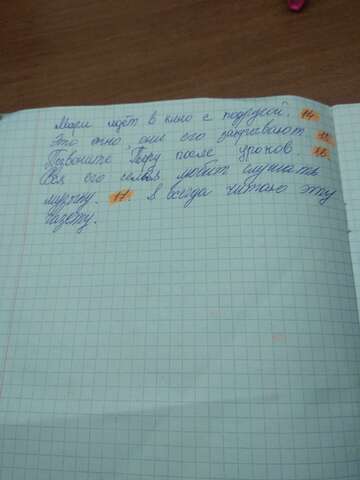 Мари идёт в кино с подругой. 14.
Это окно, они его закрывают. 15.
Позвоните Петру после уроков 16.
Вся его семья любит слушать
музыку. 17. Я всегда читаю эту
газету.